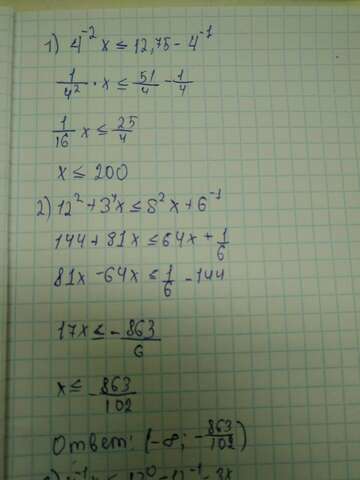 1) 4⁻² x ≤ 12,75 - 4⁻¹
1/4² · x ≤ 51/4 - 1/4
1/16 x ≤ 25/4
x ≤ 200
2) 12² + 3⁴x ≤ 8²x + 6⁻¹
144 + 81x ≤ 64x + 1/6
81x - 64x ≤ 1/6 - 144
17x ≤ - 863/6
x ≤ - 863/102
Ответ: (-∞; - 863/102)